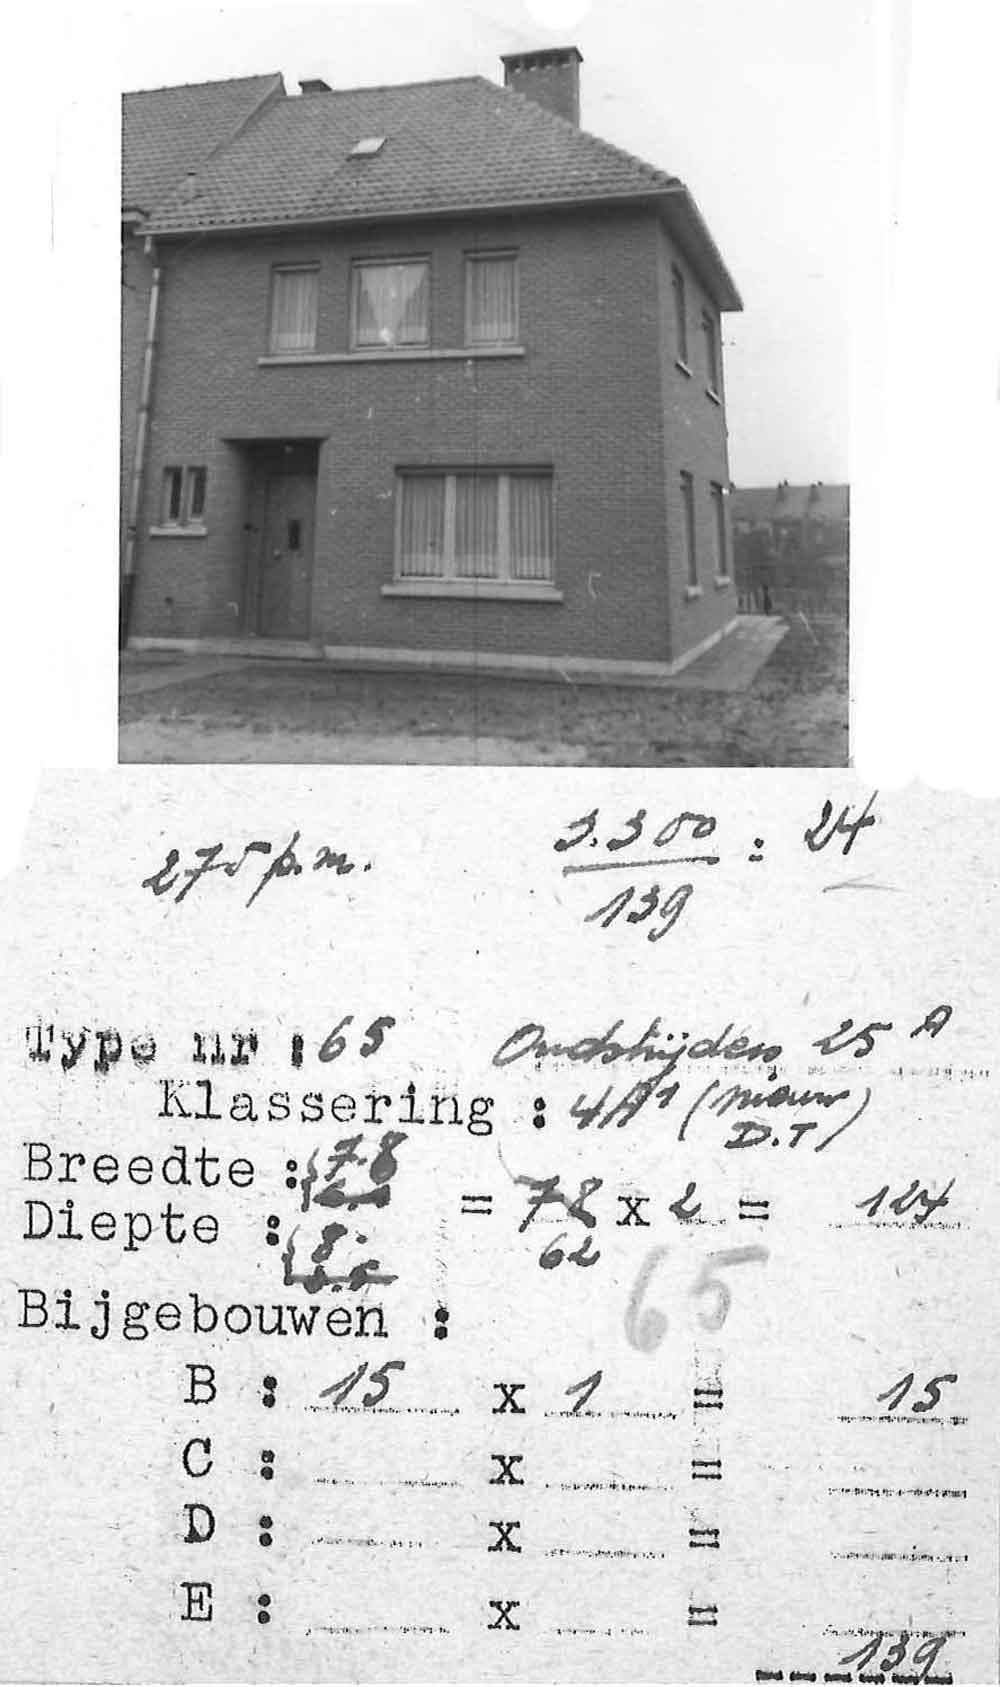 275 p.m.
3.300 : 24
139
Type nr : 65 Oudstrijders 25 A
Klassering : 4A1 (nieuw
D.T)
Breedte : 7.8
Diepte : 8. = 78 x 2 = 124
62
65
Bijgebouwen :
B : 15 x 1 = 15
C : x =
D : x =
E : x =
139